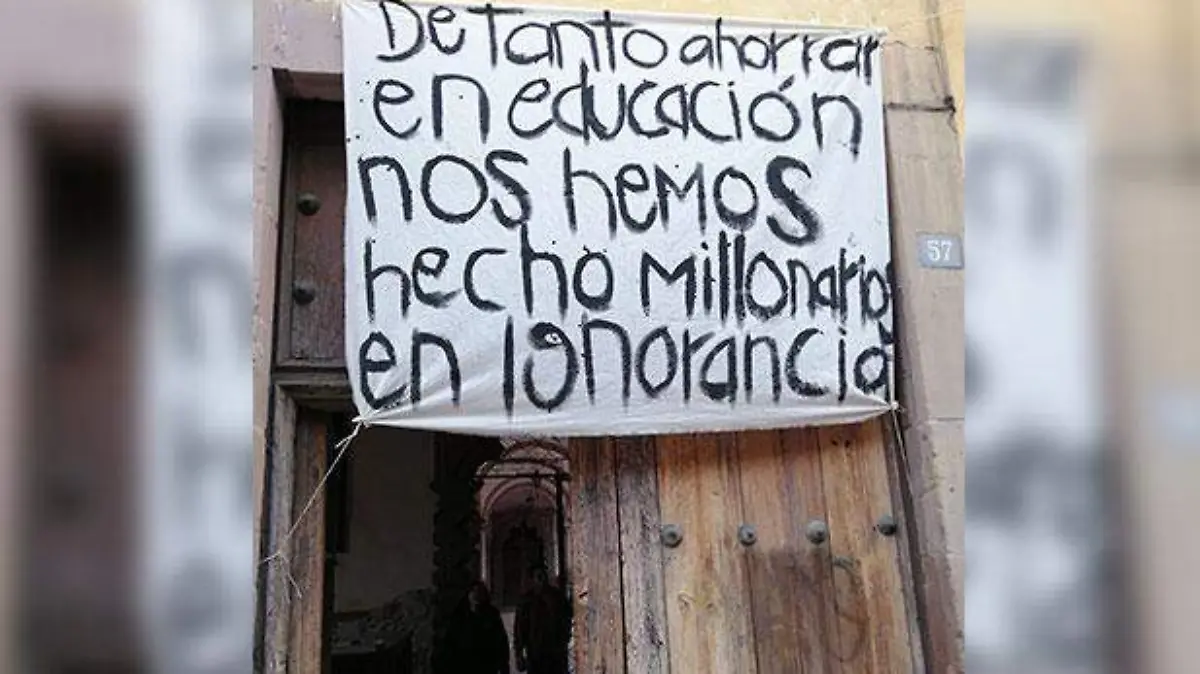 De tanto ahorrar
en educación
nos hemos
hecho millonarios
en Ignorancia
57